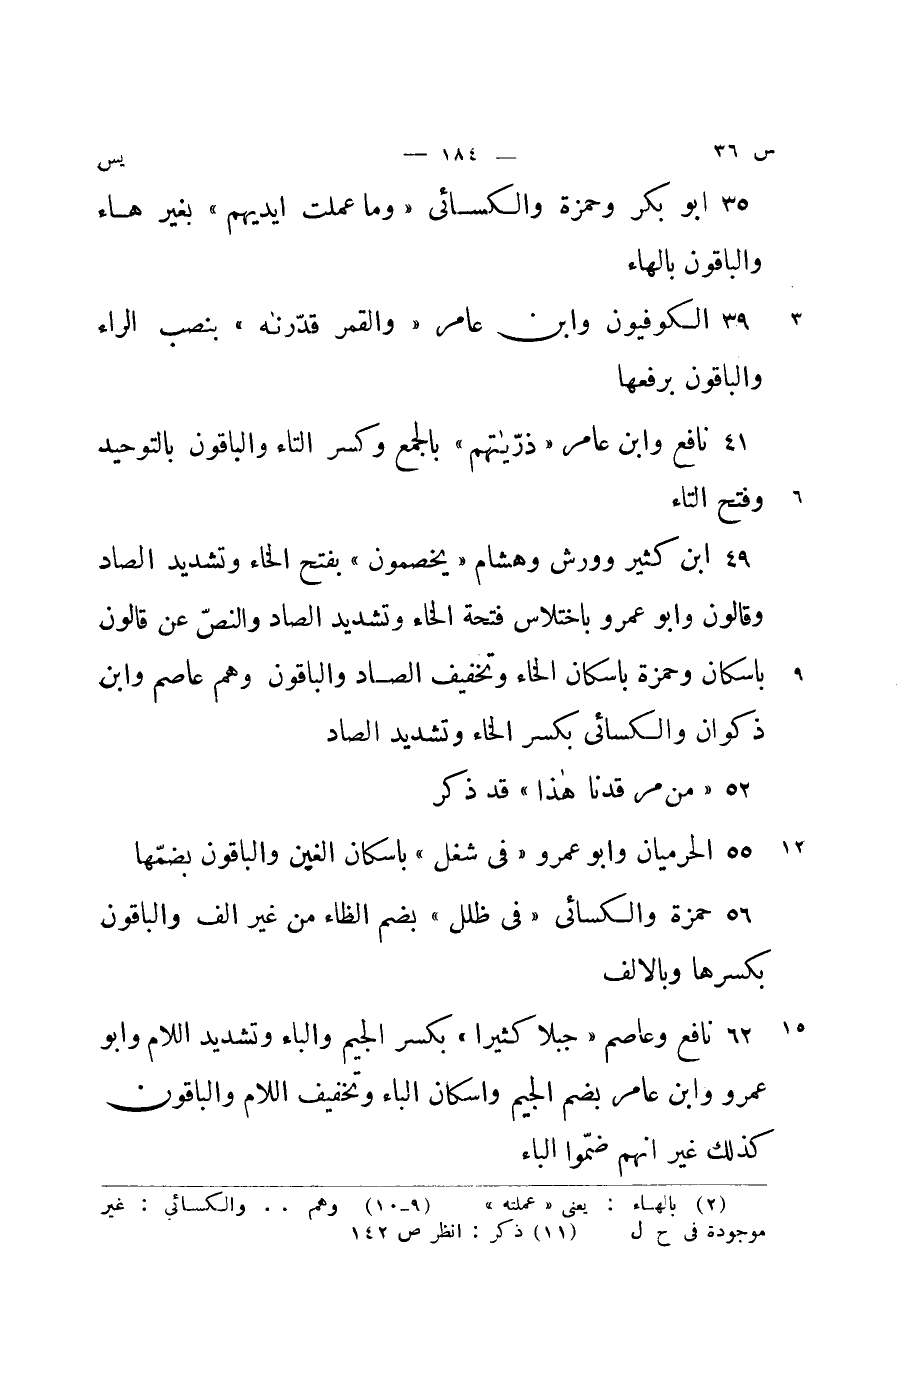 س ٣٦ — ١٨٤ — يس
٣٥ ابو بكر وحمزة والكسائى « وما عملت ايديهم » بغير هاء
والباقون بالهاء
٣ ٣٩ الكوفيون وابن عامر « والقمر قدّرنٰه » بنصب الراء
والباقون برفعها
٤١ نافع وابن عامر « ذرّيّٰتهم » بالجمع وكسر التاء والباقون بالتوحيد
٦ وفتح التاء
٤٩ ابن كثير وورش وهشام « يخصمون » بفتح الخاء وتشديد الصاد
وقالون وابو عمرو باختلاس فتحة الخاء وتشديد الصاد والنصّ عن قالون
٩ باسكان وحمزة باسكان الخاء وتخفيف الصاد والباقون وهم عاصم وابن
ذكوان والكسائى بكسر الخاء وتشديد الصاد
٥٢ « من مر قدنا هٰذا » قد ذكر
١٢ ٥٥ الحرميان وابو عمرو « فى شغل » باسكان الغين والباقون بضمّها
٥٦ حمزة والكسائى « فى ظلل » بضم الظاء من غير الف والباقون
بكسرها وبالالف
١٥ ٦٢ نافع وعاصم « جبلا كثيرا » بكسر الجيم والباء وتشديد اللام وابو
عمرو وابن عامر بضم الجيم واسكان الباء وتخفيف اللام والباقون
كذلك غير انهم ضمّوا الباء
(٢) بالهاء : يعنى « عملته » (٩-١٠) وهم . . والكسائي : غير
موجودة فى ح ل (١١) ذكر : انظر ص ١٤٢